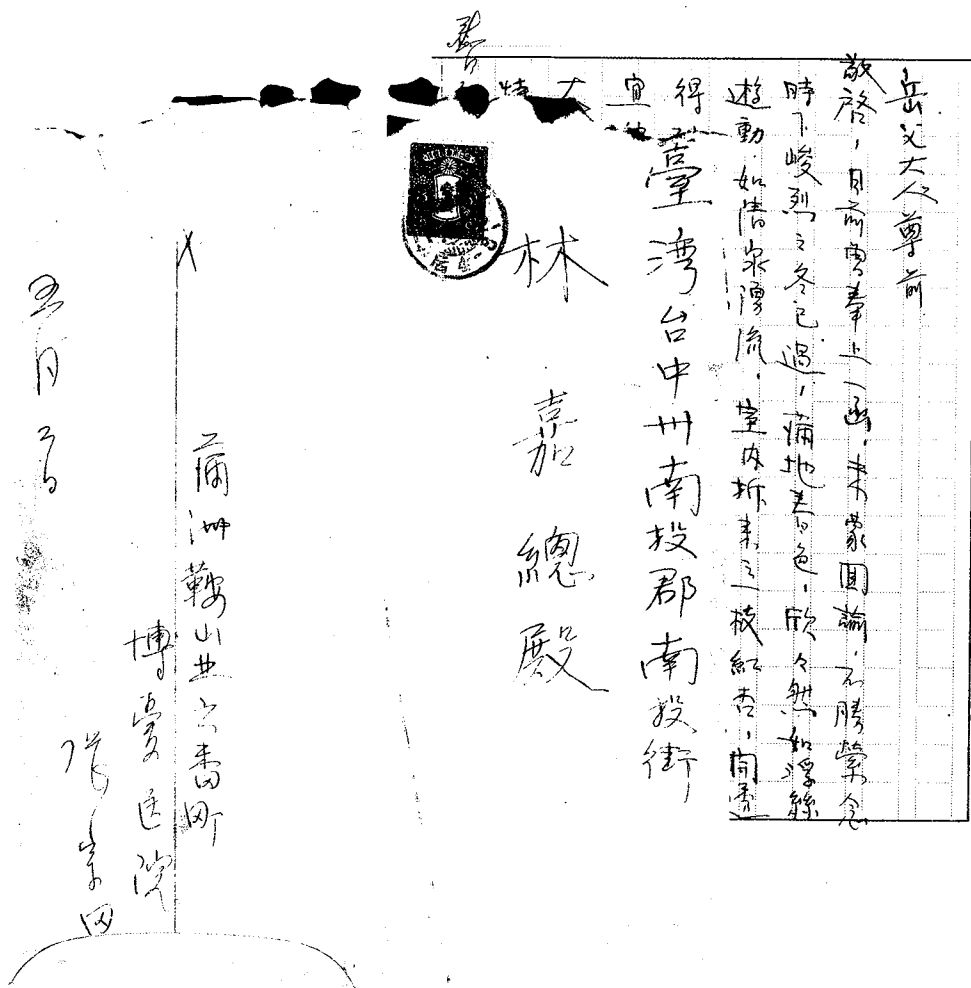 岳父大人尊前
敬啓,日前曾奉上一函,未蒙回諭,不勝縈念
時下峻烈之冬已過,滿地春色,欣々然如浮絲
遊動,如清泉湧流,室内拆來之一枝紅杏,開遍
得
宜
大
情
臺湾台中州南投郡南投街
林嘉總殿
満洲鞍山北六番町
博愛医院
五月